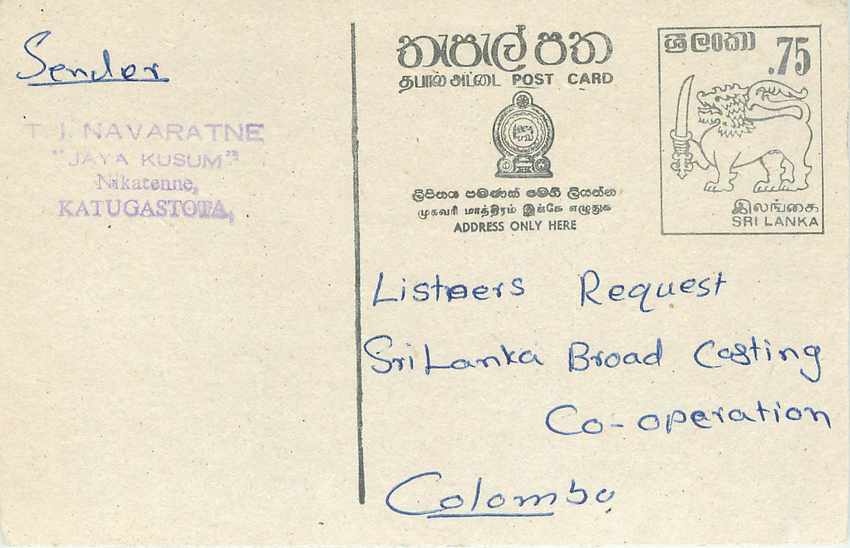 Sender
T. I. NAVARATNE
"JAYA KUSUM"
Nikatenne,
KATUGASTOTA,
තැපැල් පත
தபால் அட்டை POST CARD
ලිපිනය පමණක් මෙහි ලියන්න
முகவரி மாத்திரம் இங்கே எழுதுக
ADDRESS ONLY HERE
ශ්‍රී ලංකා
.75
இலங்கை
SRI LANKA
Listners Request
Sri Lanka Broad Casting
Co-operation
Colombo